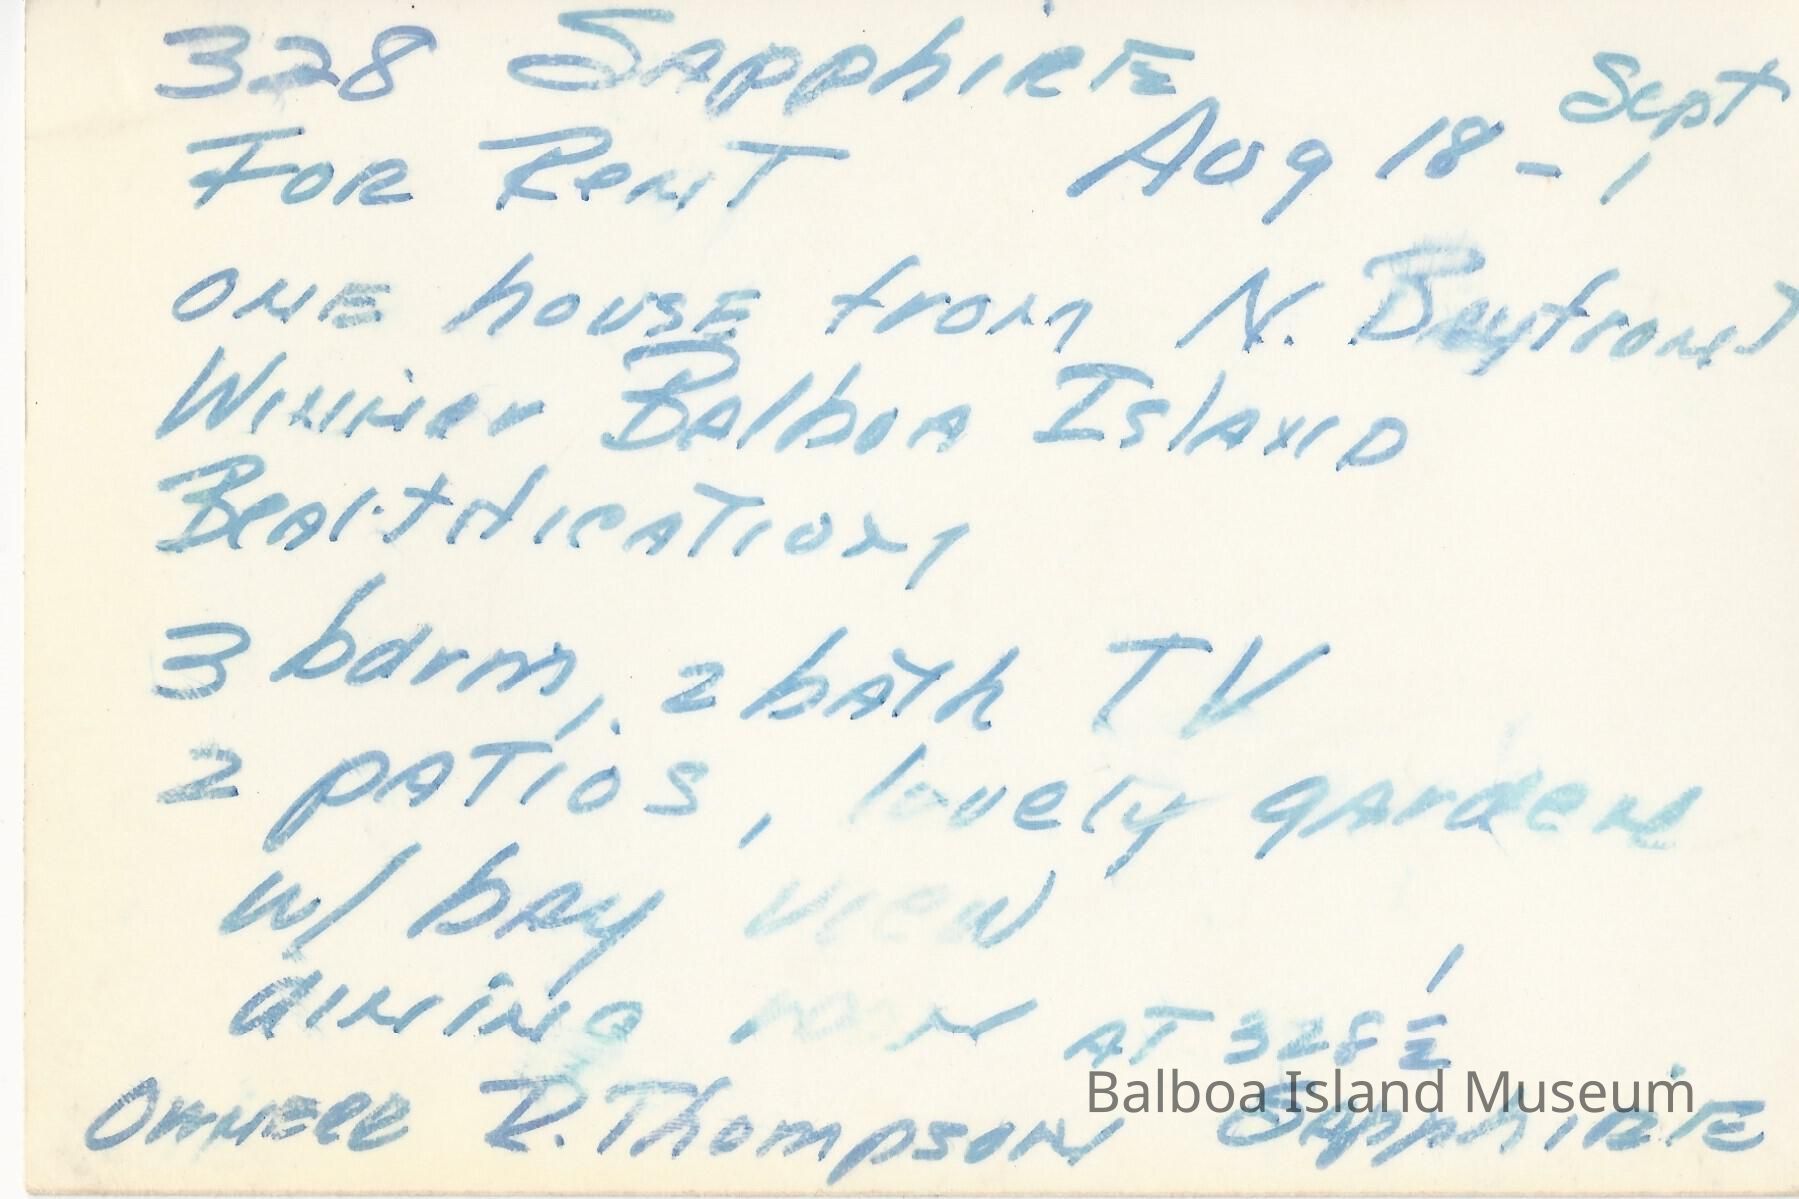 328 Sapphire
For Rent Aug 18 - Sept 1
ONE house from N. Bayfront
Winner Balboa Island
Beautification
3 bdrm, 2 bath TV
2 patios, lovely garden
w/ bay view
dining room
AT 328½
Owner R. Thompson Sapphire
Balboa Island Museum